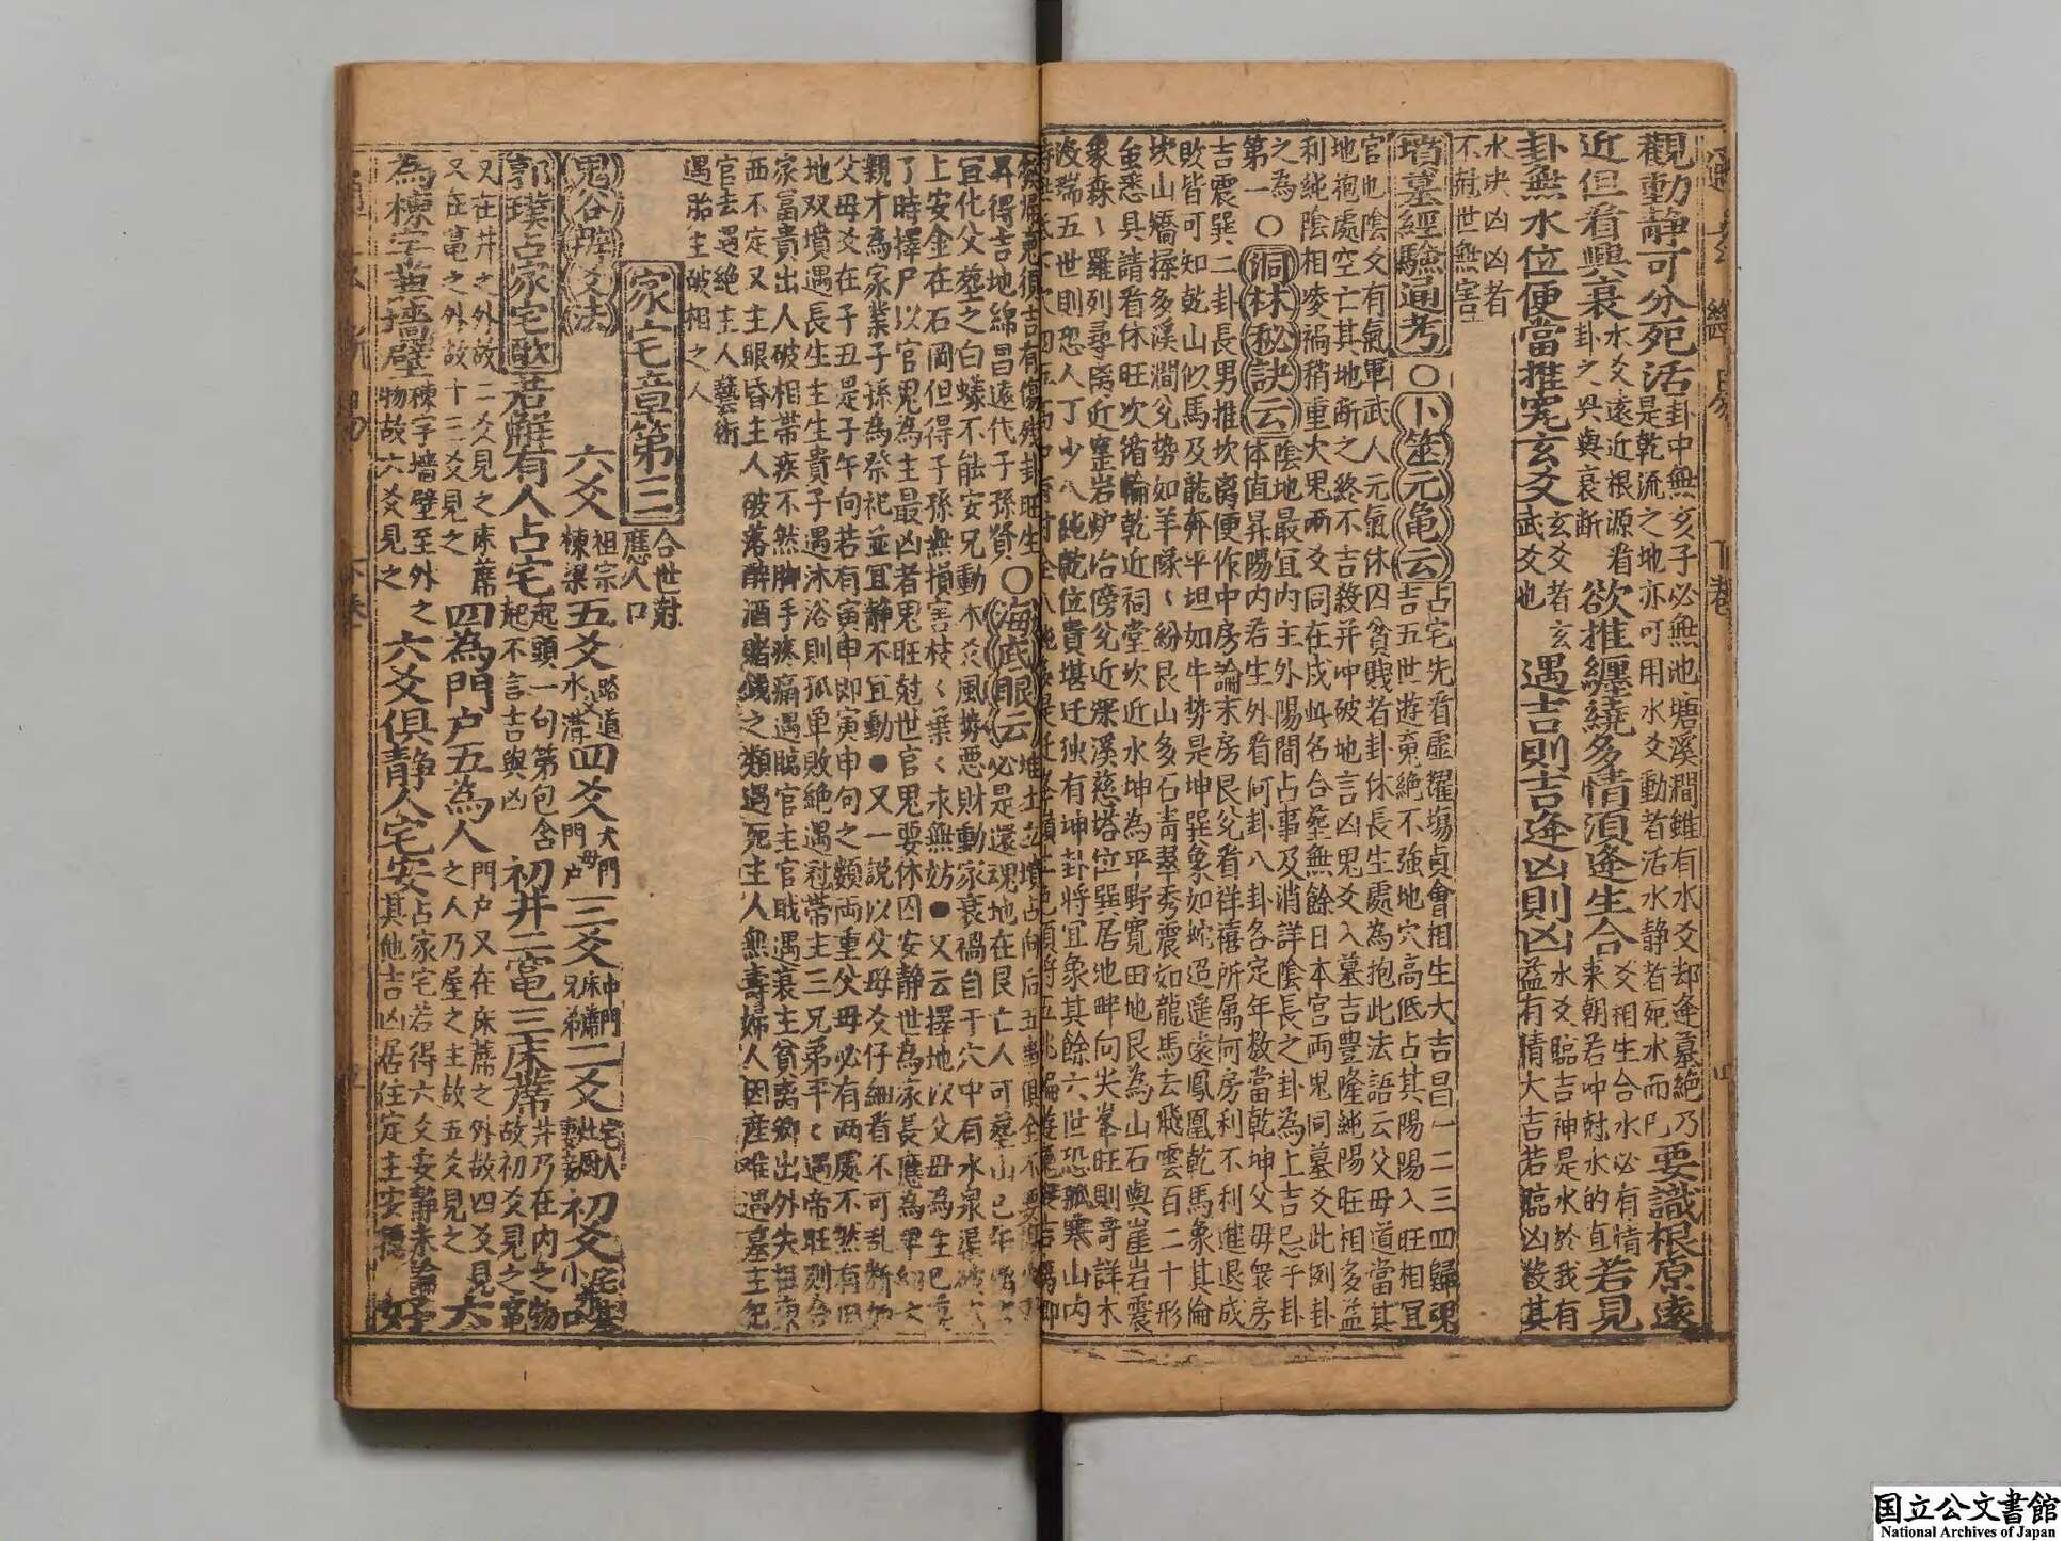 觀動靜可分死活卦中無亥子必無池塘溪澗雖有水爻却逢墓絶乃是乾流之地亦可用水爻動者活水静者死水而已要識根原遠
近但看興衰水爻遠近根源看卦之興與衰断欲推纏繞多情須逢生合爻相生合水必有情来朝若冲尅水的直若見
卦無水位便當推究玄爻玄爻者玄武爻也遇吉則吉逢凶則凶水爻臨吉神是水於我有益有情大吉若臨凶殺其
水决凶凶者
不尅世無害
墳墓經驗通考〇卜筮元亀云占宅先看虚耀塲貞會相生大吉昌一二三四歸魂
吉五世遊䰟絶不強地穴高低占其陽陽入旺相宜
官也陰爻有氣軍武人元氣休囚貧賎者卦休長生處為抱此法語云父母道當其
地抱處空亡其地断之終不吉殺并冲破地言凶鬼爻入墓吉豊隆純陽旺相多益
利純陰相凌禍稍重次鬼兩爻同在戌此名合塟無餘日本宫両鬼同墓爻此例卦
之為陰地最宜内主外陽間占事及消詳陰長之卦為上吉忌于卦
第一〇洞林秘訣云体值昇陽内若生外看何卦八卦各定年数當乾坤父母衆房
吉震巽二卦長男推坎离便作中房論末房艮兊看祥禧所属何房利不利進退成
敗皆可知乾山似馬及龍奔平坦如牛勢是坤巽象如蛇迢遥遠鳳凰乾馬象其倫
坎山矯揉多溪澗兊勢如羊隊〻紛艮山多石青翠秀震如龍馬去飛雲百二十形
虽悉具請看休旺次循輪乾近祠堂坎近水坤為平野寛田地艮為山石與崖岩震
象森〻羅列尋离近窰岩炉冶傍兊近深溪慈塔位巽居池畔向尖峯旺則奇詳木
波瑞五世則恐人丁少八純乾位貴堪迁独有坤卦将宜象其餘六世恐孤寒山内
昇得吉地綿昌遠代子孫賢〇海底眼云必是還魂地在艮亡人可塟山
宜化父塟之白蟻不能安兄動木爻風勢悪財動家衰禍自干穴中有水泉
上安金在石岡但得子孫無損害枝〻葉〻永無妨●又云擇地以父母為主
了時擇尸以官鬼為主最凶者鬼旺尅世官鬼要休囚安静世為家長應為
親才為家業子孫為祭祀並宜静不宜動●又一説以父母爻仔細看不可乱断如
父母爻在子丑是子午向若有寅申即寅申句之類両重父母必有两處不然有回
地双墳遇長生主生貴子遇沐浴則孤单敗絶遇冠帯主三兄弟平〻遇帝旺則合
家冨貴出人破相帯疾不然脚手疼痛遇臨官主官戝遇衰主貧离鄉出外失
西不定又主眼昏主人破落醉酒賭錢之類遇死主人無壽婦人因産难遇墓主
官去遇絶主人藝術
遇胎主破相之人
家宅章第三合世尅應人口
鬼谷辨爻法六爻祖宗棟梁五爻路道父水溝四爻大門母門户三爻中門床蓆兄弟二爻宅人灶厨妻初爻宅基小口
郭璞占家宅歌君解有人占宅起頭一句第包含起不言吉與凶初井二竃三床蓆井乃在内之物故初爻見之竃
又在井之外故二爻見之床蓆又在竃之外故十三爻見之四為門户五為人門户又在床蓆之外故四爻見之人乃屋之主故五爻見之六
為棟宇并墻壁棟宇墻壁至外之物故六爻見之六爻俱静人宅安占家宅若得六爻安静未論其他吉凶居住定主安好
国立公文書館
National Archives of Japan